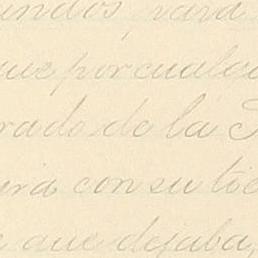 undos, para
que por cualqu
rado de la S
ria con su to
e que dejaba,